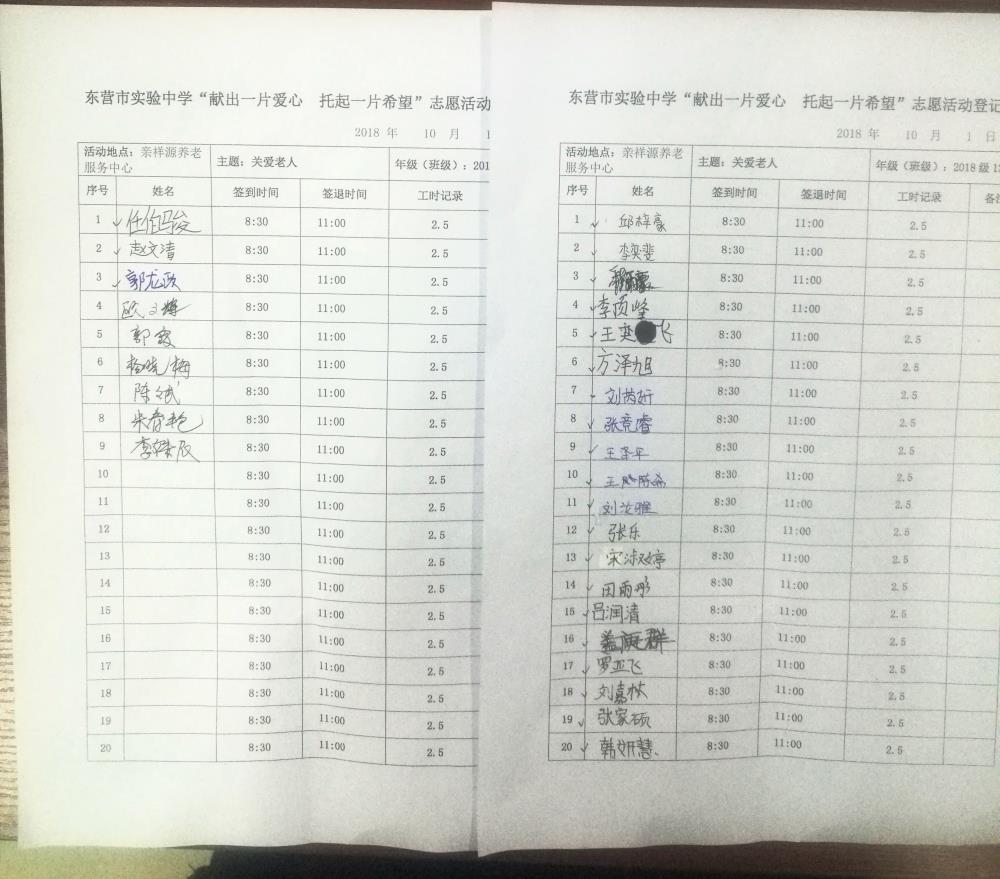 东营市实验中学“献出一片爱心 托起一片希望”志愿活动
2018 年 10 月 1
活动地点：亲祥源养老服务中心 主题：关爱老人 年级（班级）：201
序号 姓名 签到时间 签退时间 工时记录
1 任伯玛俊 8:30 11:00 2.5
2 赵文清 8:30 11:00 2.5
3 郭龙政 8:30 11:00 2.5
4 8:30 11:00 2.5
5 郭霞 8:30 11:00 2.5
6 杨晓梅 8:30 11:00 2.5
7 陈斌 8:30 11:00 2.5
8 朱春艳 8:30 11:00 2.5
9 李辰 8:30 11:00 2.5
10 8:30 11:00 2.5
11 8:30 11:00 2.5
12 8:30 11:00 2.5
13 8:30 11:00 2.5
14 8:30 11:00 2.5
15 8:30 11:00 2.5
16 8:30 11:00 2.5
17 8:30 11:00 2.5
18 8:30 11:00 2.5
19 8:30 11:00 2.5
20 8:30 11:00 2.5
东营市实验中学“献出一片爱心 托起一片希望”志愿活动登记
2018 年 10 月 1 日
活动地点：亲祥源养老服务中心 主题：关爱老人 年级（班级）：2018 级 1
序号 姓名 签到时间 签退时间 工时记录 备
1 邱梓豪 8:30 11:00 2.5
2 李奕斐 8:30 11:00 2.5
3 8:30 11:00 2.5
4 李顶峰 8:30 11:00 2.5
5 王奕飞 8:30 11:00 2.5
6 方泽旭 8:30 11:00 2.5
7 刘芮妍 8:30 11:00 2.5
8 张竞睿 8:30 11:00 2.5
9 王平 8:30 11:00 2.5
10 8:30 11:00 2.5
11 刘汝雅 8:30 11:00 2.5
12 张乐 8:30 11:00 2.5
13 宋淑婷 8:30 11:00 2.5
14 田雨彤 8:30 11:00 2.5
15 吕润清 8:30 11:00 2.5
16 8:30 11:00 2.5
17 罗亚飞 8:30 11:00 2.5
18 刘嘉 8:30 11:00 2.5
19 张家硕 8:30 11:00 2.5
20 韩妍慧 8:30 11:00 2.5